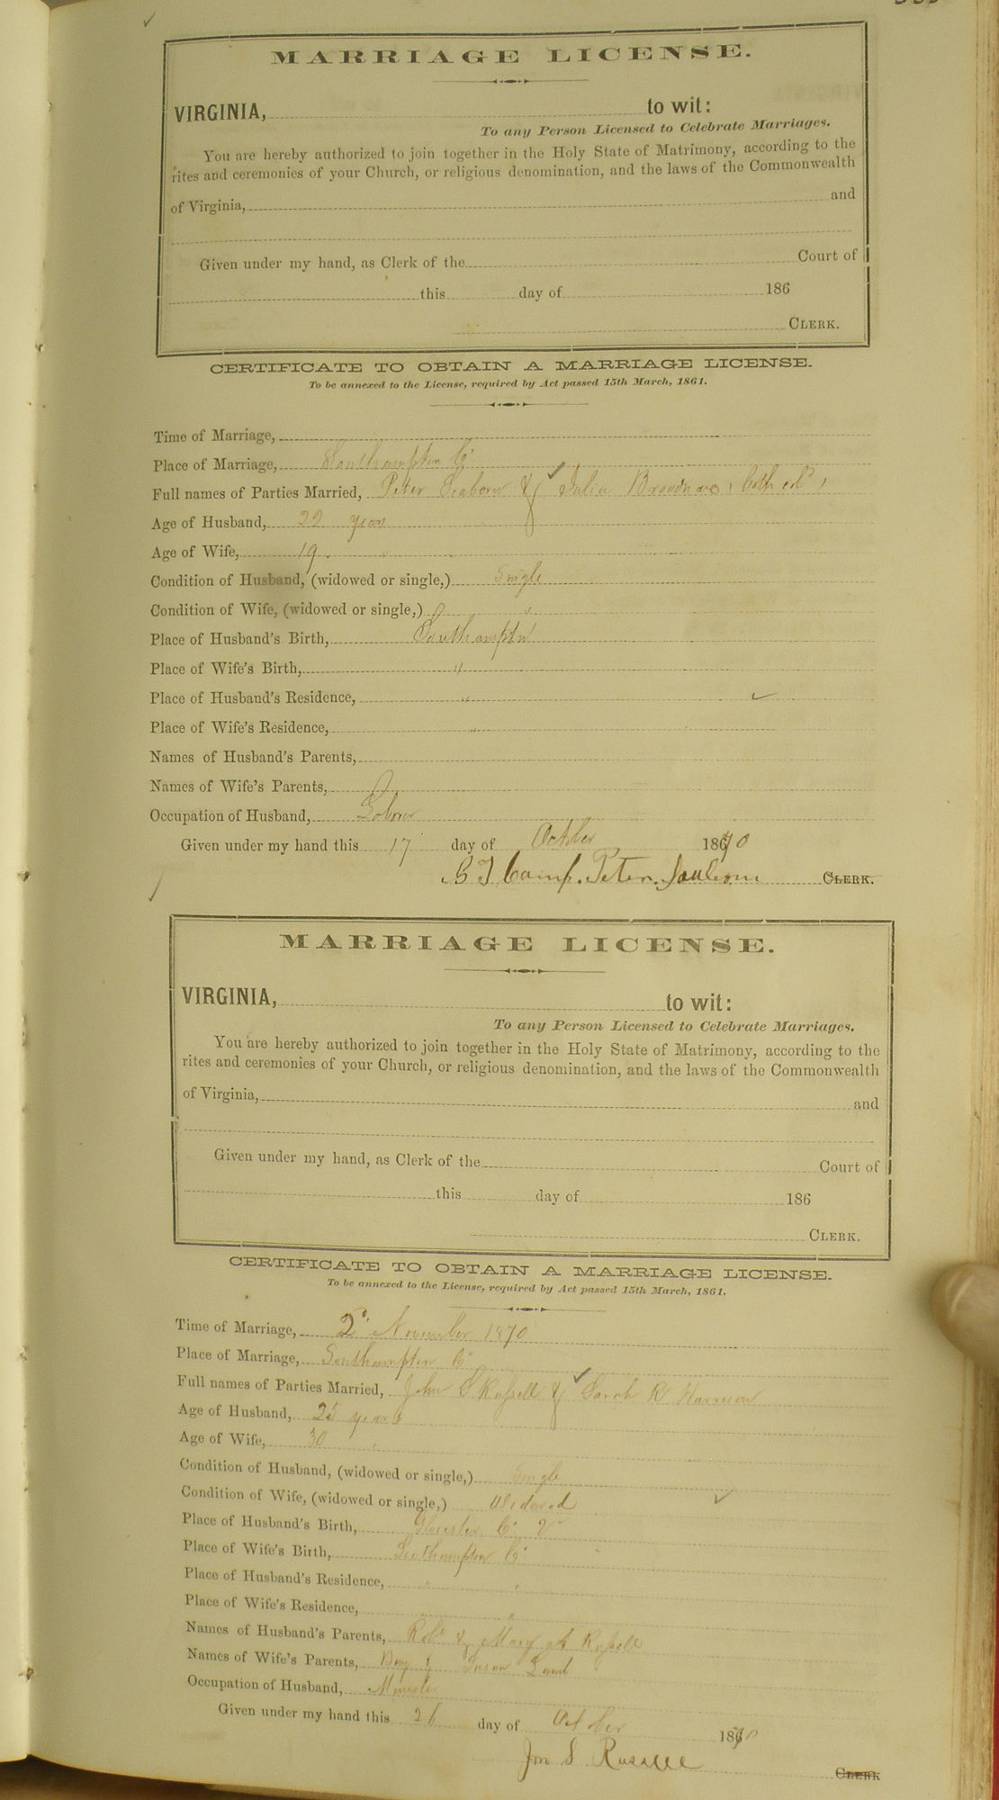 MARRIAGE LICENSE.
VIRGINIA, to wit:
To any Person Licensed to Celebrate Marriages.
You are hereby authorized to join together in the Holy State of Matrimony, according to the
rites and ceremonies of your Church, or religious denomination, and the laws of the Commonwealth
of Virginia, and
Given under my hand, as Clerk of the Court of
this day of 186
CLERK.
CERTIFICATE TO OBTAIN A MARRIAGE LICENSE.
To be annexed to the License, required by Act passed 15th March, 1861.
Time of Marriage,
Place of Marriage, Southampton Co
Full names of Parties Married, Peter Seaborn & Julia
Age of Husband, 22 years
Age of Wife, 19 "
Condition of Husband, (widowed or single,) Single
Condition of Wife, (widowed or single,) "
Place of Husband's Birth, Southampton
Place of Wife's Birth, "
Place of Husband's Residence, "
Place of Wife's Residence, "
Names of Husband's Parents,
Names of Wife's Parents,
Occupation of Husband,
Given under my hand this 17 day of October 1870
Camp. Peter CLERK.
MARRIAGE LICENSE.
VIRGINIA, to wit:
To any Person Licensed to Celebrate Marriages.
You are hereby authorized to join together in the Holy State of Matrimony, according to the
rites and ceremonies of your Church, or religious denomination, and the laws of the Commonwealth
of Virginia, and
Given under my hand, as Clerk of the Court of
this day of 186
CLERK.
CERTIFICATE TO OBTAIN A MARRIAGE LICENSE.
To be annexed to the License, required by Act passed 15th March, 1861.
Time of Marriage, 2d November 1870
Place of Marriage, Southampton Co
Full names of Parties Married, John S Russell & Sarah R Harrison
Age of Husband, 25 years
Age of Wife, 30 "
Condition of Husband, (widowed or single,) Single
Condition of Wife, (widowed or single,) Widowed
Place of Husband's Birth, Gloucester Co Va
Place of Wife's Birth, Southampton Co
Place of Husband's Residence, " "
Place of Wife's Residence, "
Names of Husband's Parents, Robt & Mary Russell
Names of Wife's Parents, & Susan
Occupation of Husband, Minister
Given under my hand this 26 day of October 1870
Jno S Russell CLERK